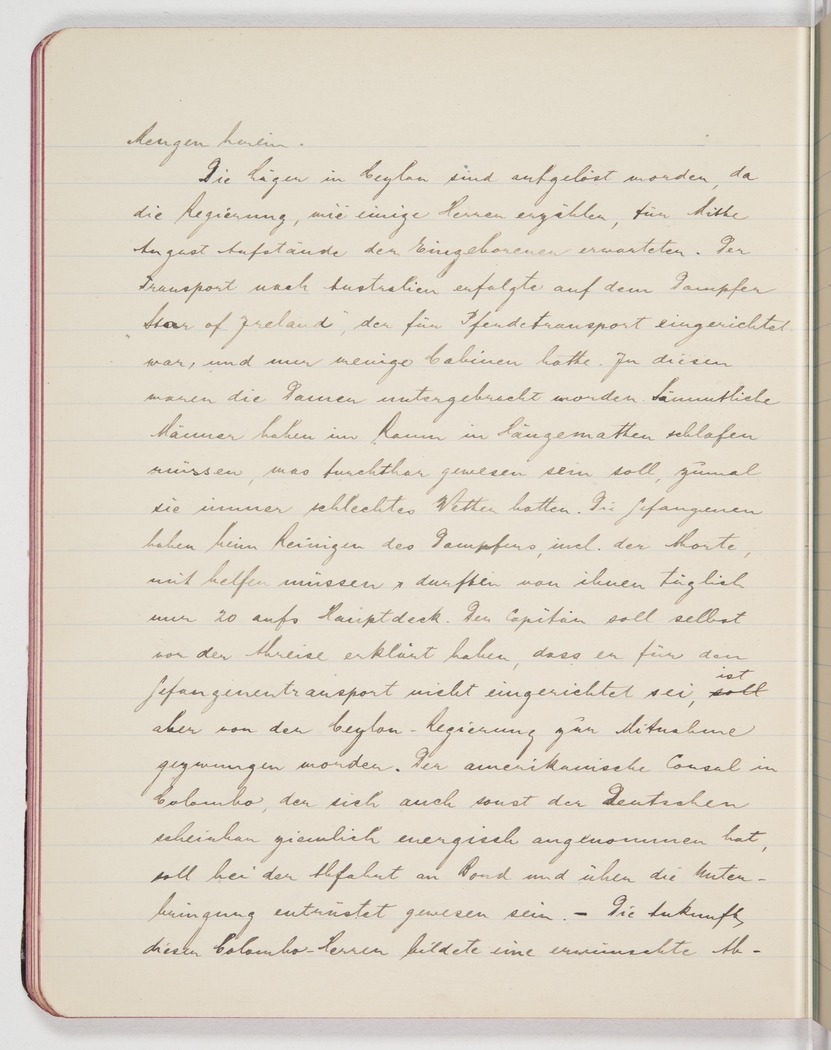 Mengen herein.
Die Lager in Ceylon sind aufgelöst worden, da
die Regierung, wie einige Herren erzählen, für Mitte
August Aufstände der Eingeborenen erwarteten. Der
Transport nach Australien erfolgte auf dem Dampfer
„Star of Jreland", der für Pferdetransport eingerichtet
war, und nur wenige Cabinen hatte. Jn diesen
waren die Damen untergebracht worden. Sämmtliche
Männer haben im Raum in Hängematten schlafen
müssen, was furchtbar gewesen sein soll, zumal
sie immer schlechtes Wetter hatten. Die Gefangenen
haben beim Reinigen des Dampfers, incl. der Aborte,
mit helfen müssen & durften von ihnen täglich
nur 20 aufs Hauptdeck. Der Capitän soll selbst
vor der Abreise erklärt haben, dass er für den
Gefangenentransport nicht eingerichtet sei, soll ist
aber von der Ceylon-Regierung zur Mitnahme
gezwungen worden. Der amerikanische Consul in
Colombo, der sich auch sonst der Deutschen
scheinbar ziemlich energisch angenommen hat,
soll bei der Abfahrt an Bord und über die Unter-
bringung entrüstet gewesen sein. – Die Ankunft
dieser Colombo-Herren bildete eine erwünschte Ab-